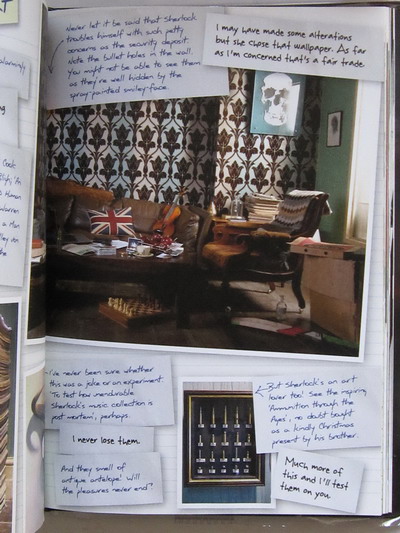 Never let it be said that Sherlock
troubles himself with such petty
concerns as the security deposit.
Note the bullet holes in the wall.
You might not be able to see them
as they're well hidden by the
spray-painted smiley-face.
I may have made some alterations
but she chose that wallpaper. As far
as I'm concerned that's a fair trade.
I've never been sure whether
this was a joke or an experiment.
'To test how unendurable
Sherlock's music collection is
post mortem', perhaps.
I never lose them.
And they smell of
antique antelope! Will
the pleasures never end?
But Sherlock's an art
lover too! See the inspiring
'Ammunition through the
Ages', no doubt bought
as a kindly Christmas
present by his brother.
Much more of
this and I'll test
them on you.